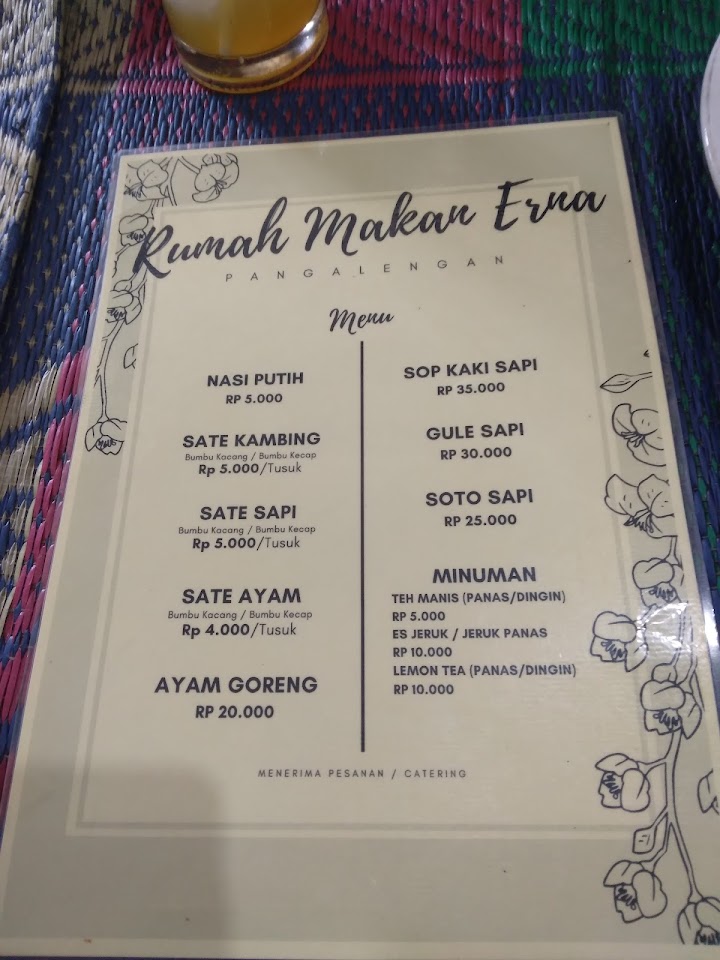 Rumah Makan Erna
PANGALENGAN
Menu
NASI PUTIH
RP 5.000
SATE KAMBING
Bumbu Kacang / Bumbu Kecap
Rp 5.000/Tusuk
SATE SAPI
Bumbu Kacang / Bumbu Kecap
Rp 5.000/Tusuk
SATE AYAM
Bumbu Kacang / Bumbu Kecap
Rp 4.000/Tusuk
AYAM GORENG
RP 20.000
SOP KAKI SAPI
RP 35.000
GULE SAPI
RP 30.000
SOTO SAPI
RP 25.000
MINUMAN
TEH MANIS (PANAS/DINGIN)
RP 5.000
ES JERUK / JERUK PANAS
RP 10.000
LEMON TEA (PANAS/DINGIN)
RP 10.000
MENERIMA PESANAN / CATERING